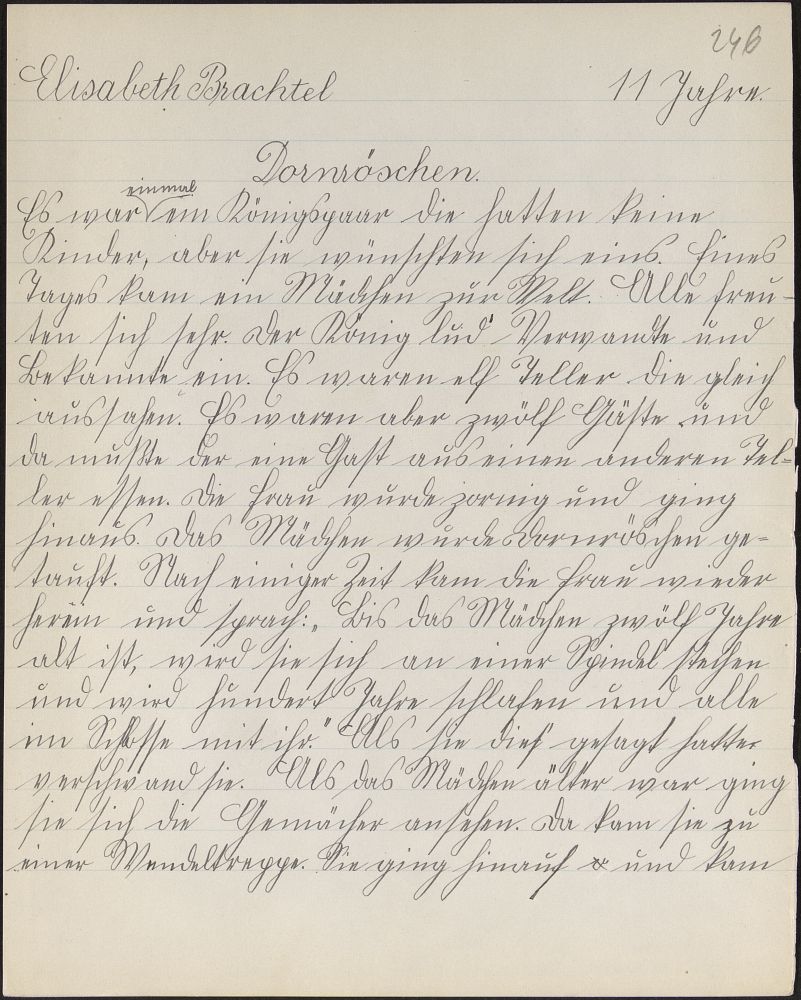 246
Elisabeth Brachtel 11 Jahre.
Dornröschen.
einmal
Es war ein Königspaar die hatten keine
Kinder, aber sie wünschten sich eins. Eines
Tages kam ein Mädchen zur Welt. Alle freu-
ten sich sehr. Der König lud Verwandte und
Bekannte ein. Es waren elf Teller die gleich
aussahen. Es waren aber zwölf Gäste und
da mußte der eine Gast aus einen anderen Tel-
ler essen. Die Frau wurde zornig und ging
hinaus. Das Mädchen wurde Dornröschen ge-
tauft. Nach einiger Zeit kam die Frau wieder
herein und sprach: „Bis das Mädchen zwölf Jahre
alt ist, wird sie sich an einer Spindel stechen
und wird hundert Jahre schlafen und alle
im Schlosse mit ihr." Als sie dies gesagt hatte
verschwand sie. Als das Mädchen älter war ging
sie sich die Gemächer ansehen. Da kam sie zu
einer Wendeltreppe. Sie ging hinauf und kam